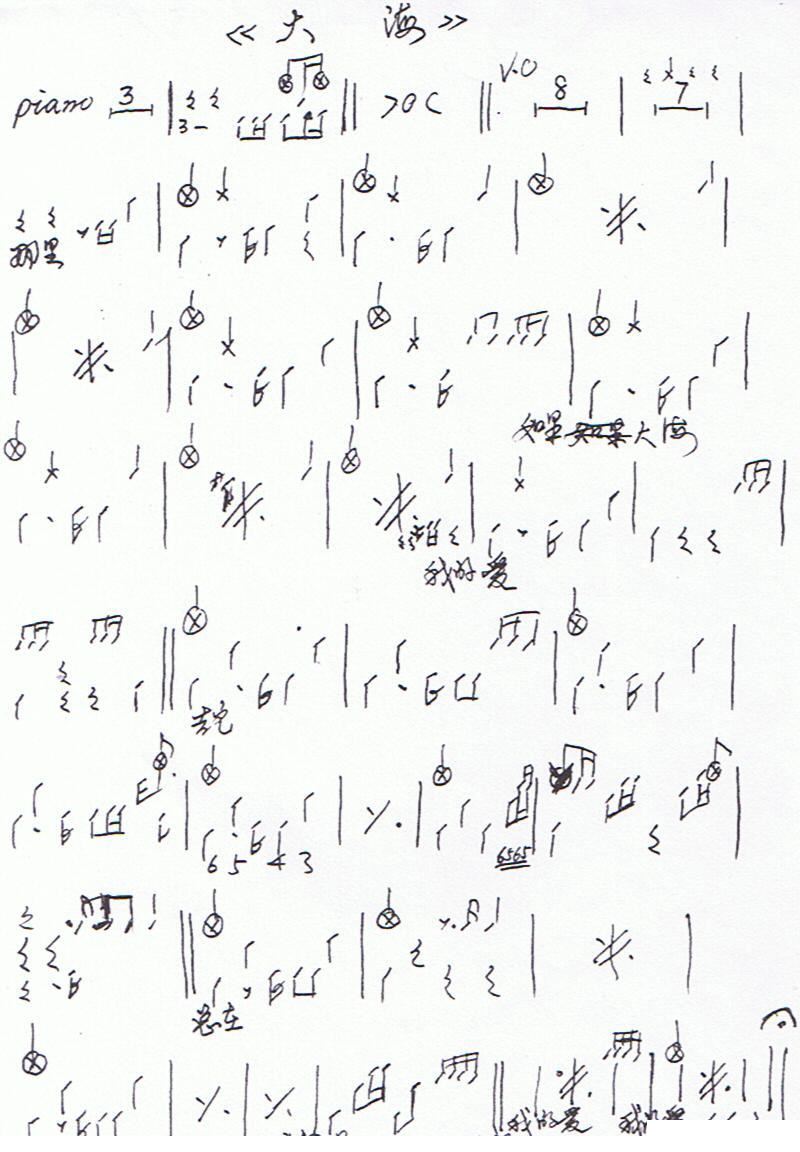 《大海》
piano 3 3- >OC V.O 8 7
那里
如果 如果 大海
我的爱
卷它
6 5 4 3 6565
总在
我的爱 我的爱